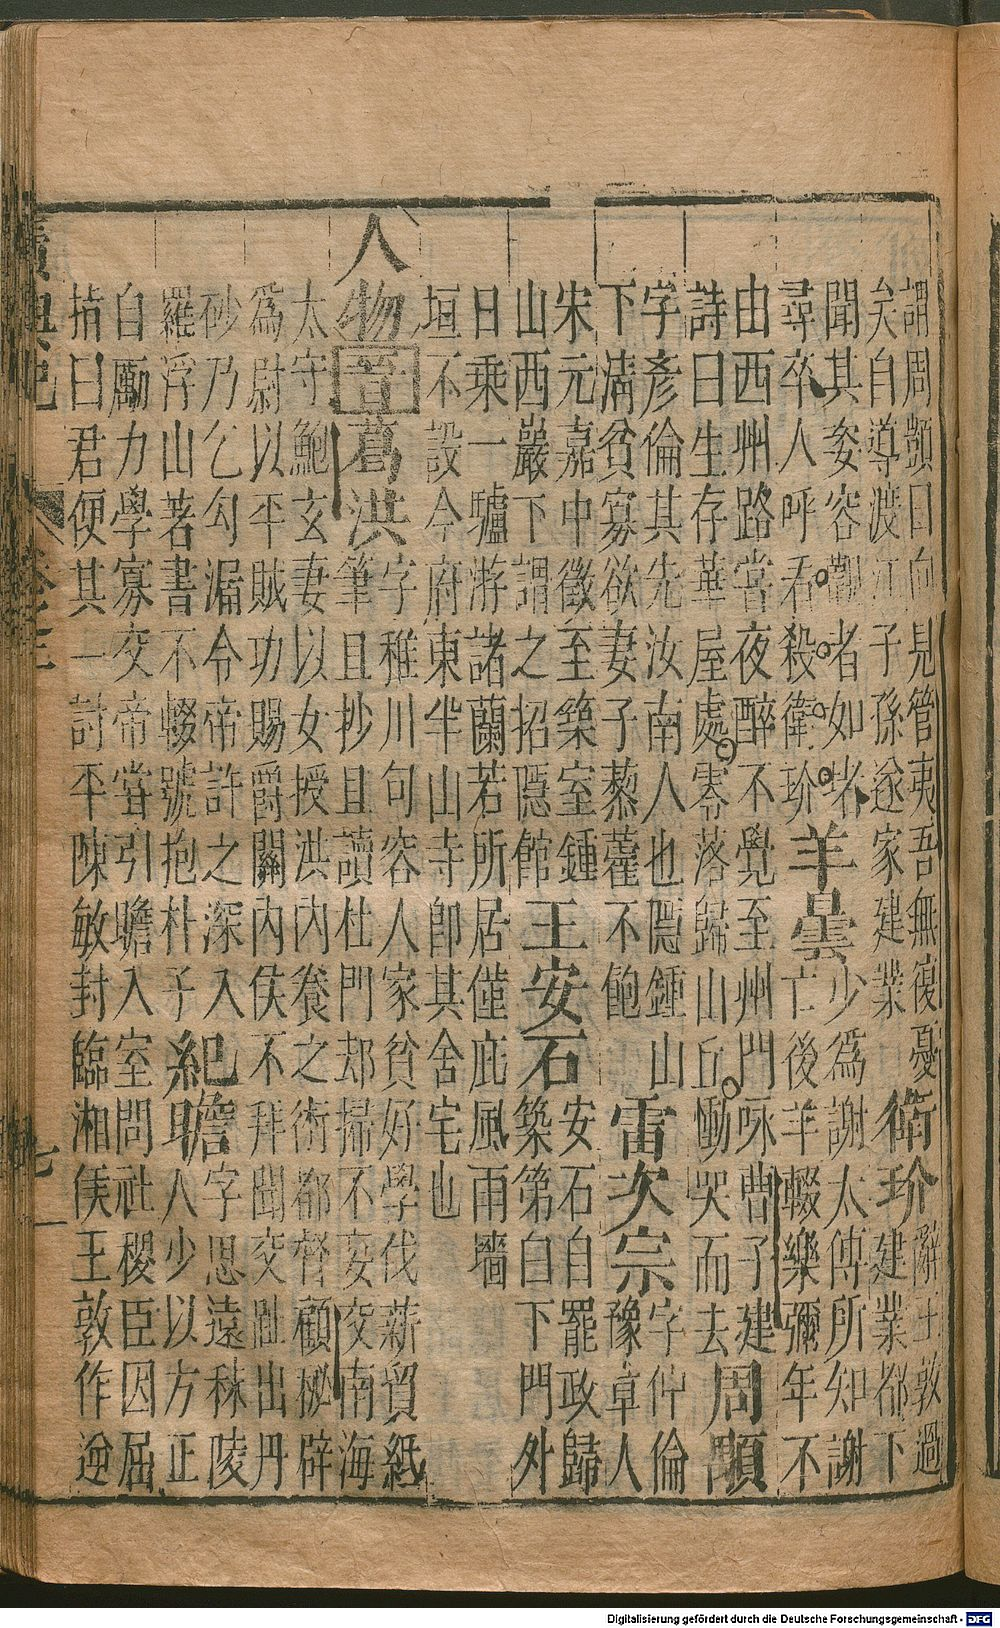 謂周顗曰向見管夷吾無復憂
矣自導渡江子孫遂家建業
衛玠
辭王敦過
建業都下
聞其姿容觀者如堵
尋卒人呼看殺衛玠
羊曇
少爲謝太傅所知謝
亡後羊輟樂彌年不
由西州路嘗夜醉不覺至州門咏曹子建
詩曰生存華屋處零落歸山丘慟哭而去
周顒
字彥倫其先汝南人也隱鍾山
下清貧寡欲妻子藜藿不飽
雷次宗
字仲倫
豫章人
宋元嘉中徵至築室鍾
山西巖下謂之招隱館
王安石
安石自罷政歸
築第白下門外
日乘一驢游諸蘭若所居僅庇風雨墻
垣不設今府東半山寺即其舍宅也
人物晉葛洪
字稚川句容人家貧好學伐薪貿紙
筆且抄且讀杜門却掃不妄交南海
太守鮑玄妻以女授洪內養之術都督顧秘辟
爲尉以平賊功賜爵關內侯不拜聞交趾出丹
砂乃乞勾漏令帝許之深入
羅浮山著書不輟號抱朴子
紀瞻
字思遠秣陵
人少以方正
自勵力學寡交帝嘗引瞻入室問社稷臣因屈
指曰君便其一討平陳敏封臨湘侯王敦作逆
廣輿記 七
Digitalisierung gefördert durch die Deutsche Forschungsgemeinschaft - DFG